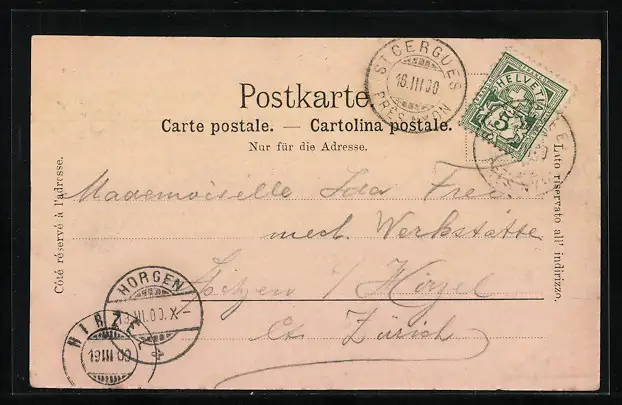 Postkarte.
Carte postale. — Cartolina postale.
Nur für die Adresse.
Côté réservé à l'adresse.
Lato riservato all' indirizzo.
ST CERGUES
16.III.00
PRÈS NYON
HELVETIA
5
Mademoiselle Ida Frei
mech. Werkstätte
b/ Hirzel
Ct. Zürich
HORGEN
III.00.X-
HIRZEL